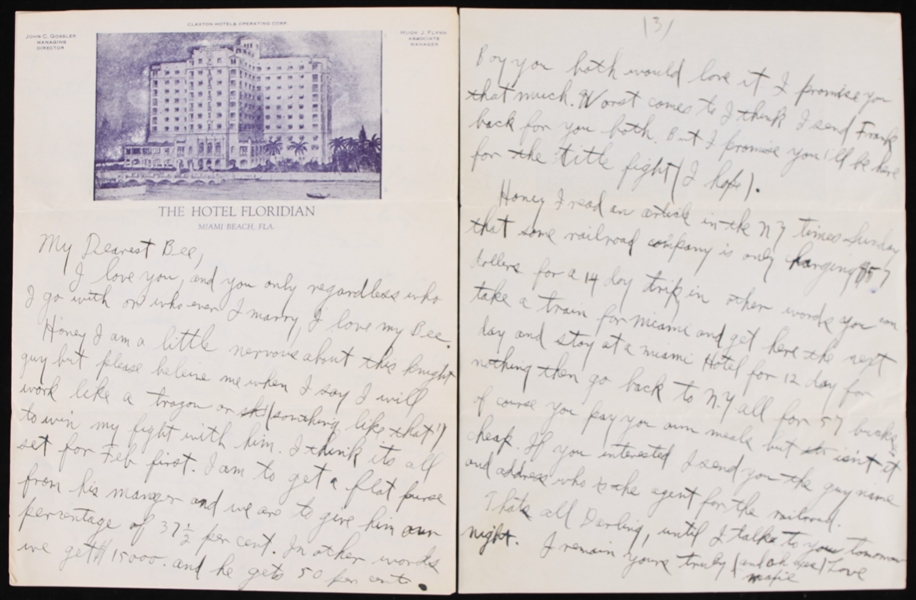 CLAXTON HOTELS OPERATING CORP.
JOHN C. GOSSLER
MANAGING
DIRECTOR
HUGH J. FLYNN
ASSOCIATE
MANAGER
THE HOTEL FLORIDIAN
MIAMI BEACH, FLA.
My Dearest Bee,
I love you, and you only regardless who
I go with or who ever I marry, I love my Bee.
Honey I am a little nervous about this Knight
guy but please believe me when I say I will
work like a tragon or (something like that)
to win my fight with him. I think its all
set for Feb first. I am to get a flat purse
from his manger and we are to give him our
percentage of 37½ per cent. In other words
we get $15000. and he gets 50 per cent.
(3)
Boy you both would love it I promise you
that much. Worst comes to I think I send Frank
back for you both. But I promise you I'll be here
for the title fight (I hope).
Honey I read an article in the NY times Sunday
that some railroad company is only charging $57
dollers for a 14 day trip, in other words you can
take a train for Miami and get here the next
day and stay at a Miami Hotel for 12 day for
nothing then go back to NY all for 57 bucks,
of course you pay you own meals but isn't it
cheap. If you interested I send you the guy name
and address who is the agent for the railroad.
Thats all Darling, until I talk to you tomorrow
night. I remain
yours truly ( ) Love